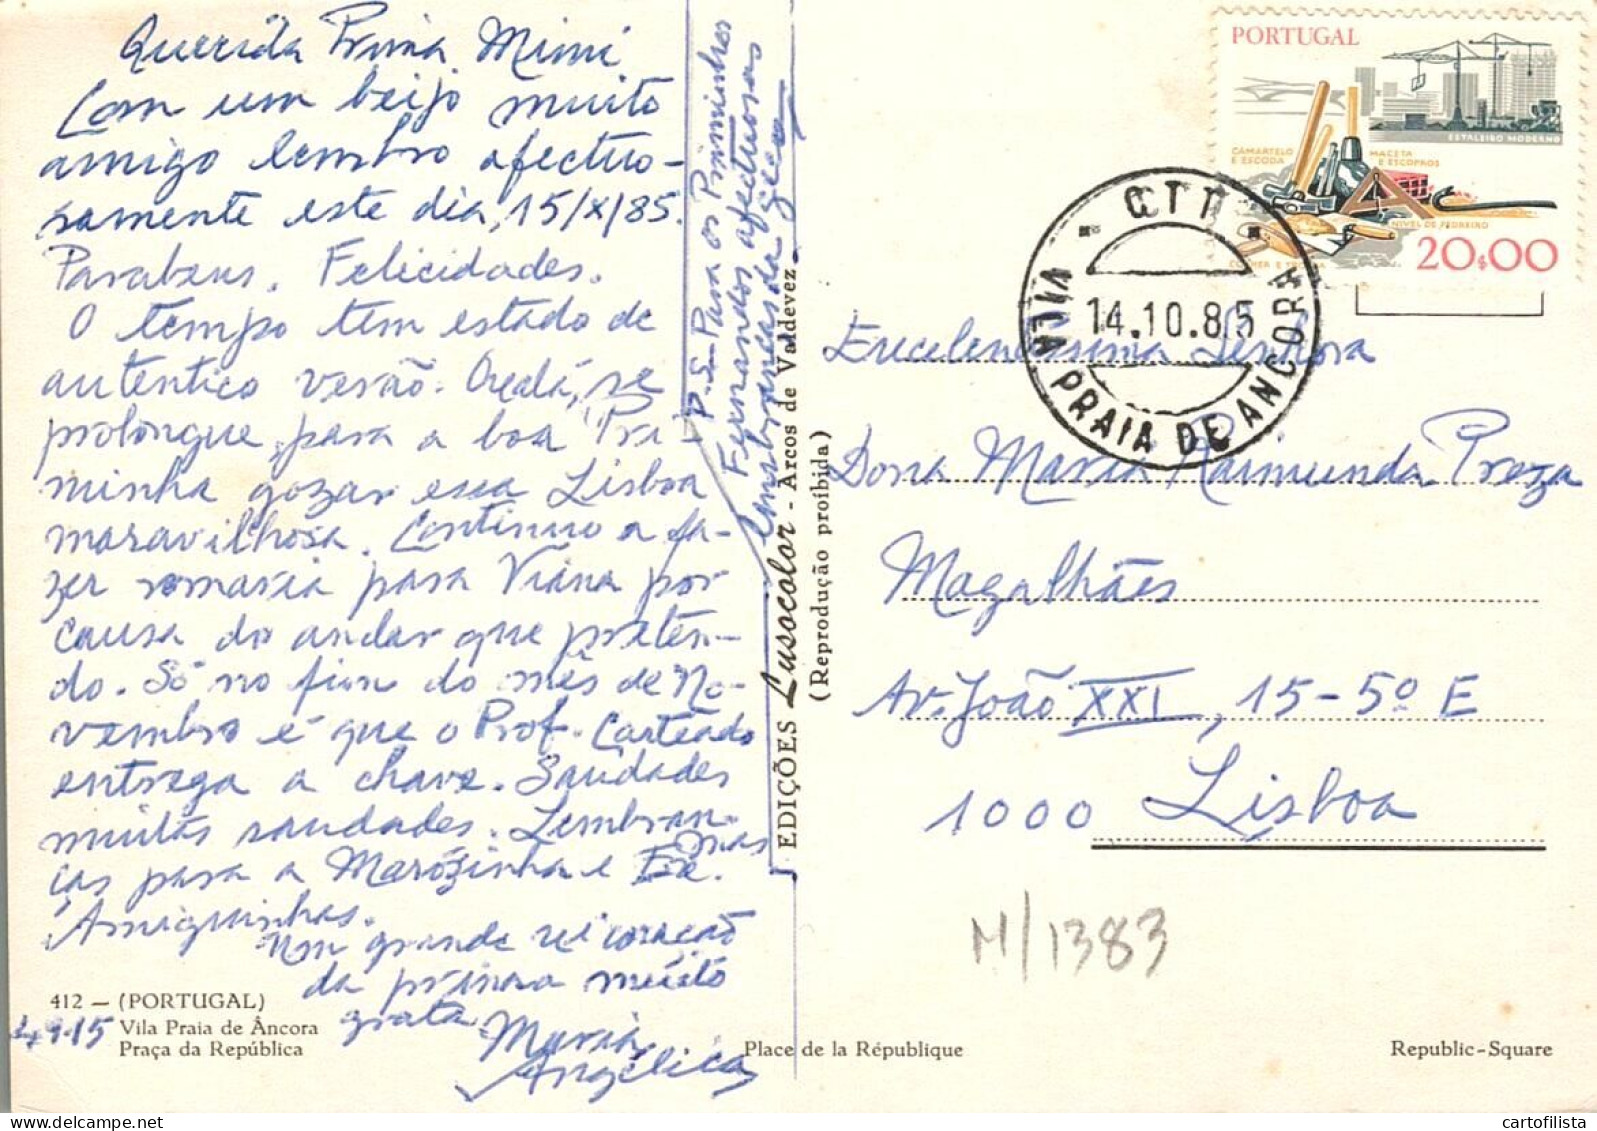 Querida Prima Mimi
Com um beijo muito
amigo lembro afectuo-
samente este dia, 15/X/85.
Parabens. Felicidades.
O tempo tem estado de
autentico verão. Oxalá, se
prolongue, para a boa Pri-
minha gozar essa Lisboa
maravilhosa. Continuo a fa-
zer romaria para Viana por
causa do andar que preten-
do. Só no fim do mês de No-
vembro é que o Prof. Carteado
entrega a chave. Saudades
muitas saudades. Lembran-
ças para a Marozinha e Exmas
Amiguinhas.
Um grande coração
da prima muito
grata
Maria
Angélica
P.S. Para os Priminhos
Fernandos afectuosas
lembranças da
412 — (PORTUGAL)
Vila Praia de Âncora
Praça da República
Place de la République
Republic-Square
EDIÇÕES Lusocolor - Arcos de Valdevez
(Reprodução proibida)
PORTUGAL
ESTALEIRO MODERNO
CAMARTELO
E ESCODA
MACETA
E ESCOPROS
NIVEL DE PEDREIRO
20$00
CTT
14.10.85
VILA PRAIA DE ANCORA
Excelentíssima Senhora
Dona Maria Raimunda Preza
Magalhães
Av. João XXI, 15-5º E
1000 Lisboa
M/1383
cartofilista